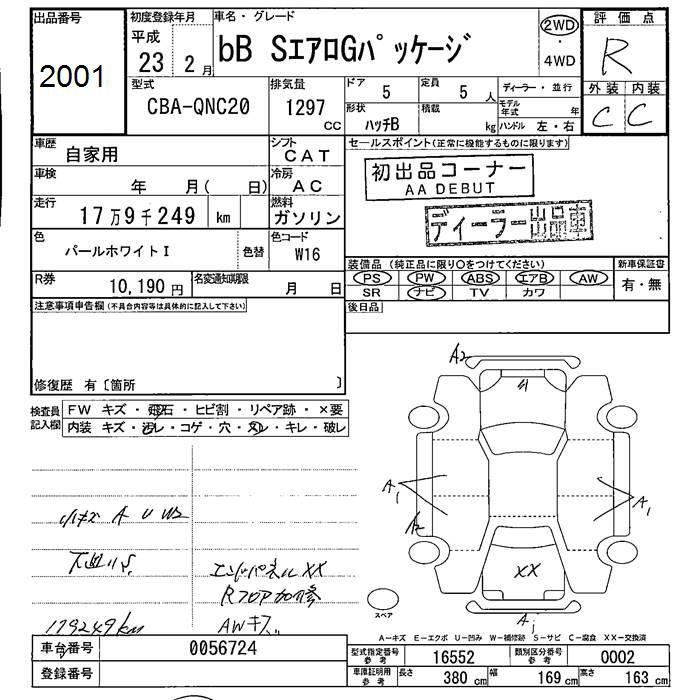 出品番号
2001
初度登録年月
平成
23 2月
車名・グレード
bB SエアロGパッケージ
2WD
・
4WD
評価点
R
型式
CBA-QNC20
排気量
1297 cc
ドア 5
定員 5 人
ディーラー・並行
形状
ハッチB
積載 kg
モデル年式 年
ハンドル 左・右
外装 内装
C C
車歴
自家用
シフト
CAT
セールスポイント(正常に機能するものに限ります)
初出品コーナー
AA DEBUT
ディーラー出品車
車検
年 月( 日)
冷房
AC
走行
17万9千249 km
燃料
ガソリン
色
パールホワイトI
色替
色コード
W16
装備品(純正品に限り○をつけてください)
新車保証書
PS PW ABS エアB AW
SR ナビ TV カワ
有・無
R券
10,190円
名変通知期限
月 日
後日品
注意事項申告欄(不具合内容等は具体的に記入して下さい)
修復歴 有〔箇所 〕
検査員記入欄
FW キズ・飛石・ヒビ割・リペア跡・×要
内装 キズ・汚レ・コゲ・穴・スレ・キレ・破レ
A2
A1
A2
A1
XX
A1
小キズ A U W2
下廻りS
179249km
エンドパネルXX
Rフロア加修
AWキズ
スペア
A-キズ E-エクボ U-凹み W-補修跡 S-サビ C-腐食 XX-交換済
車台番号
0056724
登録番号
型式指定番号 参考
16552
類別区分番号 参考
0002
車庫証明用 参考
長さ 380 cm
幅 169 cm
高さ 163 cm